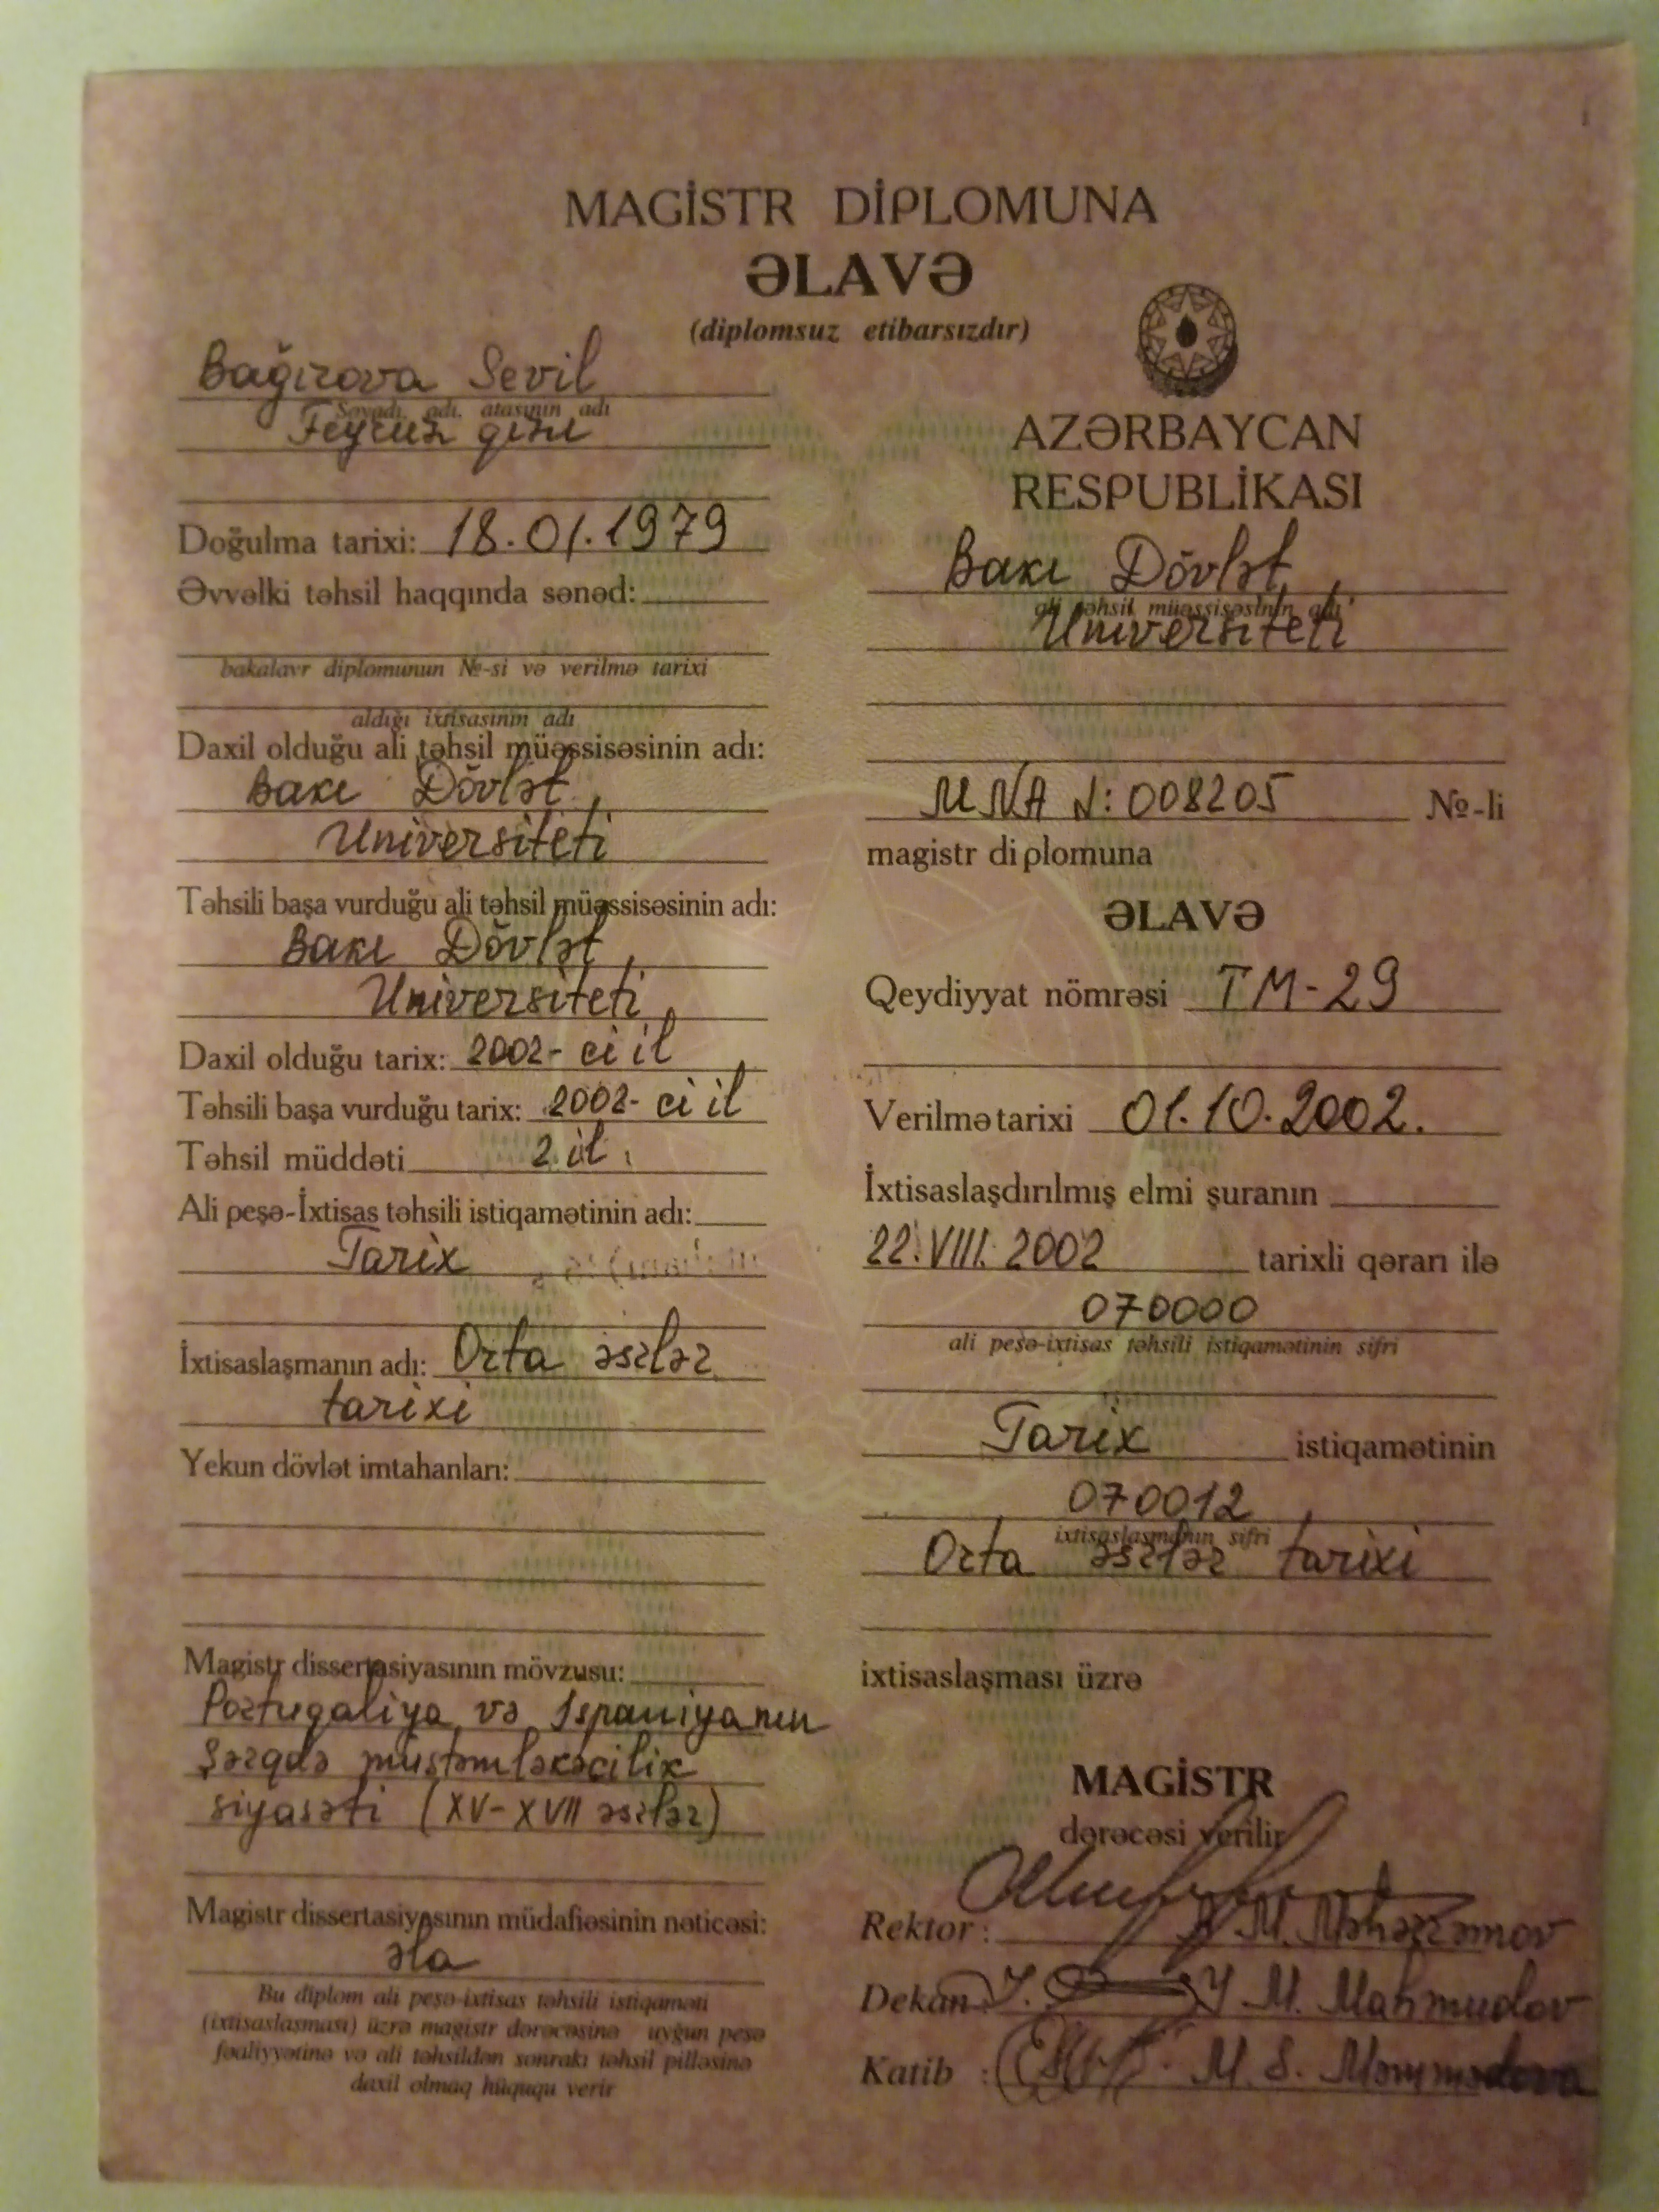 MAGİSTR DİPLOMUNA
ƏLAVƏ
(diplomsuz etibarsızdır)
Bağırova Sevil
Soyadı, adı, atasının adı
Feyruz qızı
Doğulma tarixi: 18.01.1979
Əvvəlki təhsil haqqında sənəd:
bakalavr diplomunun №-si və verilmə tarixi
aldığı ixtisasının adı
Daxil olduğu ali təhsil müəssisəsinin adı:
Bakı Dövlət
Universiteti
Təhsili başa vurduğu ali təhsil müəssisəsinin adı:
Bakı Dövlət
Universiteti
Daxil olduğu tarix: 2002-ci il
Təhsili başa vurduğu tarix: 2002-ci il
Təhsil müddəti 2 il
Ali peşə-İxtisas təhsili istiqamətinin adı:
Tarix
İxtisaslaşmanın adı: Orta əsrlər
tarixi
Yekun dövlət imtahanları:
Magistr dissertasiyasının mövzusu:
Portugaliya və Ispaniyanın
Şərqdə müstəmləkəçilik
siyasəti (XV-XVII əsrlər)
Magistr dissertasiyasının müdafiəsinin nəticəsi:
əla
Bu diplom ali peşə-ixtisas təhsili istiqaməti
(ixtisaslaşması) üzrə magistr dərəcəsinə uyğun peşə
fəaliyyətinə və ali təhsildən sonrakı təhsil pilləsinə
daxil olmaq hüququ verir
AZƏRBAYCAN
RESPUBLİKASI
Bakı Dövlət
ali təhsil müəssisəsinin adı
Universiteti
MNA №: 008205 №-li
magistr diplomuna
ƏLAVƏ
Qeydiyyat nömrəsi TM-29
Verilmə tarixi 01.10.2002.
İxtisaslaşdırılmış elmi şuranın
22.VIII.2002 tarixli qərarı ilə
070000
ali peşə-ixtisas təhsili istiqamətinin şifri
Tarix istiqamətinin
070012
ixtisaslaşmanın şifri
Orta əsrlər tarixi
ixtisaslaşması üzrə
MAGİSTR
dərəcəsi verilir
Rektor: A. M. Məhərrəmov
Dekan Y. M. Mahmudov
Katib : M. S. Məmmədova